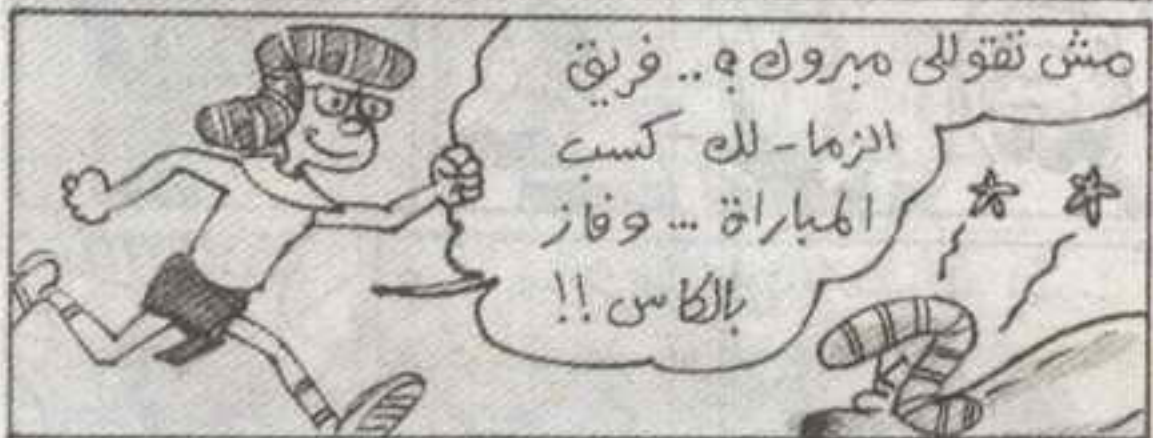 مش تقوللى مبروك ؟.. فريق
الزما-لك كسب
المباراة ... وفاز
بالكاس !!